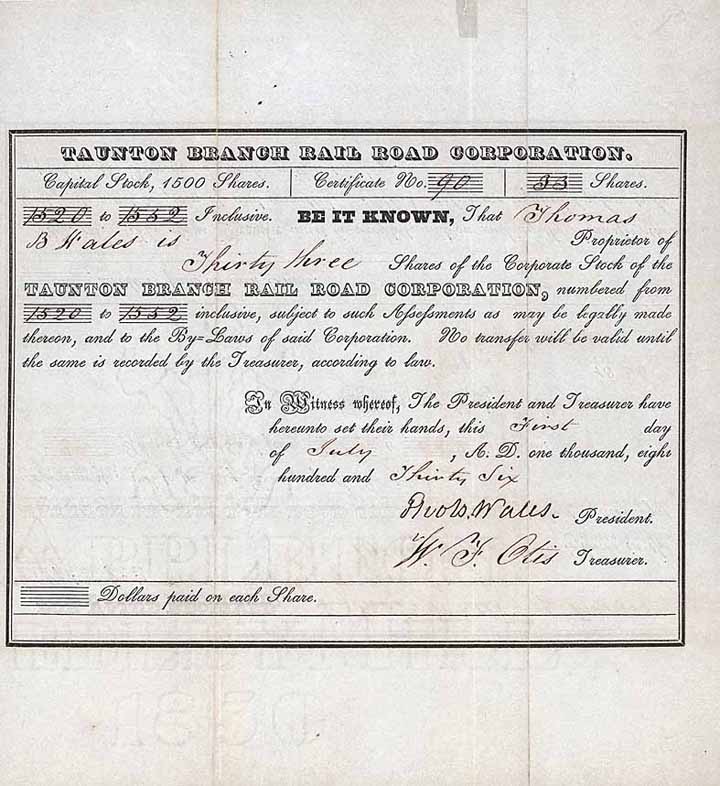 TAUNTON BRANCH RAIL ROAD CORPORATION.
Capital Stock, 1500 Shares. Certificate No. 90 33 Shares.
1520 to 1552 Inclusive. BE IT KNOWN, That Thomas
B Wales is Proprietor of
Thirty three Shares of the Corporate Stock of the
TAUNTON BRANCH RAIL ROAD CORPORATION, numbered from
1520 to 1552 inclusive, subject to such Assessments as may be legally made
thereon, and to the By=Laws of said Corporation. No transfer will be valid until
the same is recorded by the Treasurer, according to law.
In Witness whereof, The President and Treasurer have
hereunto set their hands, this First day
of July, A. D. one thousand, eight
hundred and Thirty Six
Thos B. Wales. President.
W. F. Otis Treasurer.
Dollars paid on each Share.